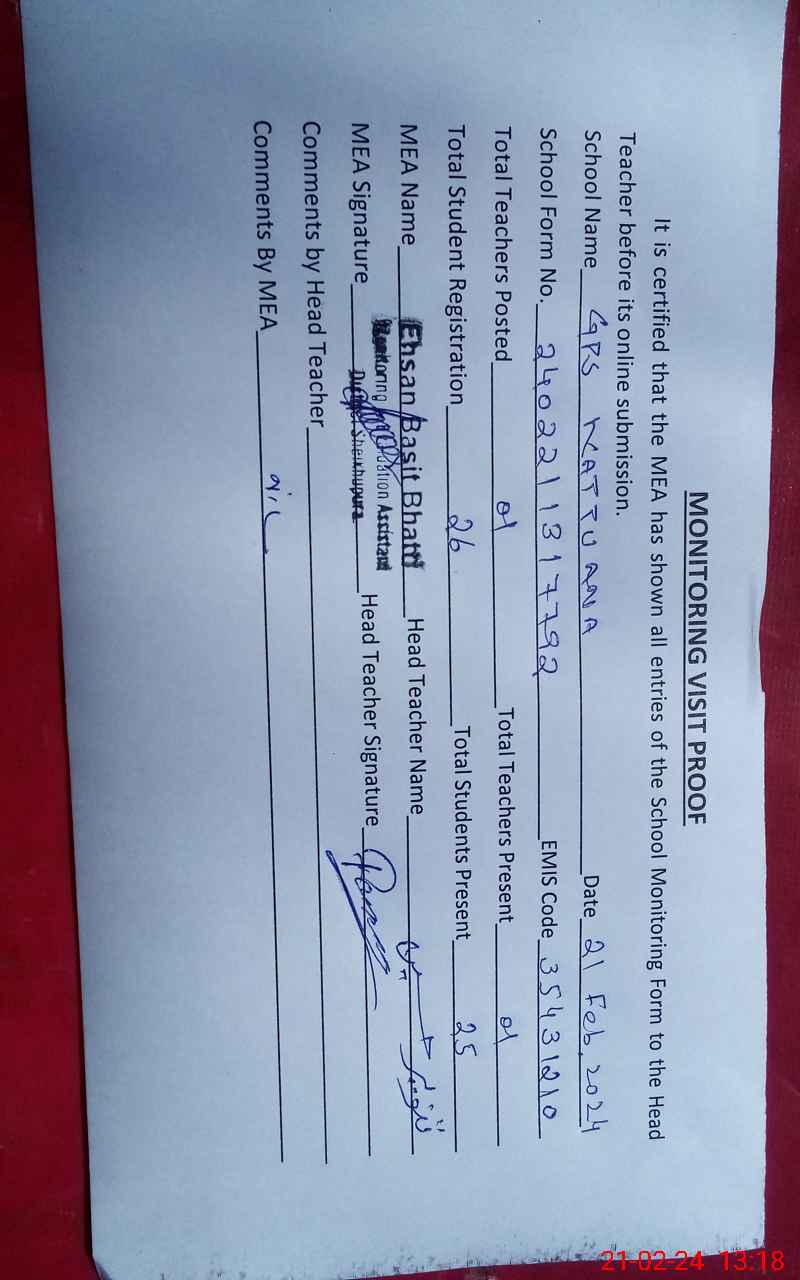 MONITORING VISIT PROOF
It is certified that the MEA has shown all entries of the School Monitoring Form to the Head
Teacher before its online submission.
School Name GPS WATTU ANA Date 21 Feb, 2024
School Form No. 240221131 7792 EMIS Code 35431210
Total Teachers Posted 01 Total Teachers Present 01
Total Student Registration 26 Total Students Present 25
MEA Name Ehsan Basit Bhatti Head Teacher Name
MEA Signature Assistant Sheikhupura Head Teacher Signature
Comments by Head Teacher
Comments By MEA Nil
21-02-24 13:18